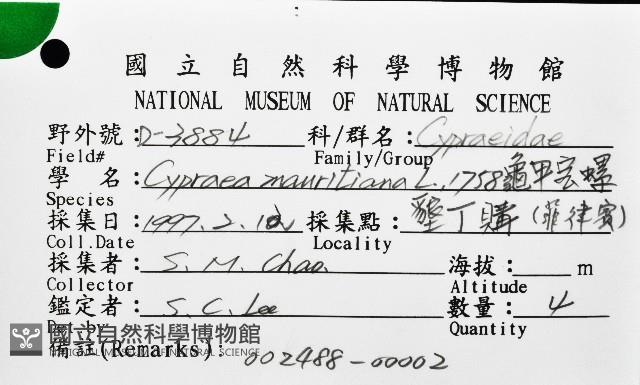 國立自然科學博物館
NATIONAL MUSEUM OF NATURAL SCIENCE
野外號:D-3884 科/群名:Cypraeidae
Field# Family/Group
學 名:Cypraea mauritiana L., 1758 龜甲宝螺
Species
採集日:1997.2. 採集點:墾丁購(菲律賓)
Coll.Date Locality
採集者:S. M. Chao 海拔: m
Collector Altitude
鑑定者:S. C. Lee 數量:4
Det.by Quantity
國立自然科學博物館
NATIONAL MUSEUM OF NATURAL SCIENCE
備註(Remarks): 002488-00002